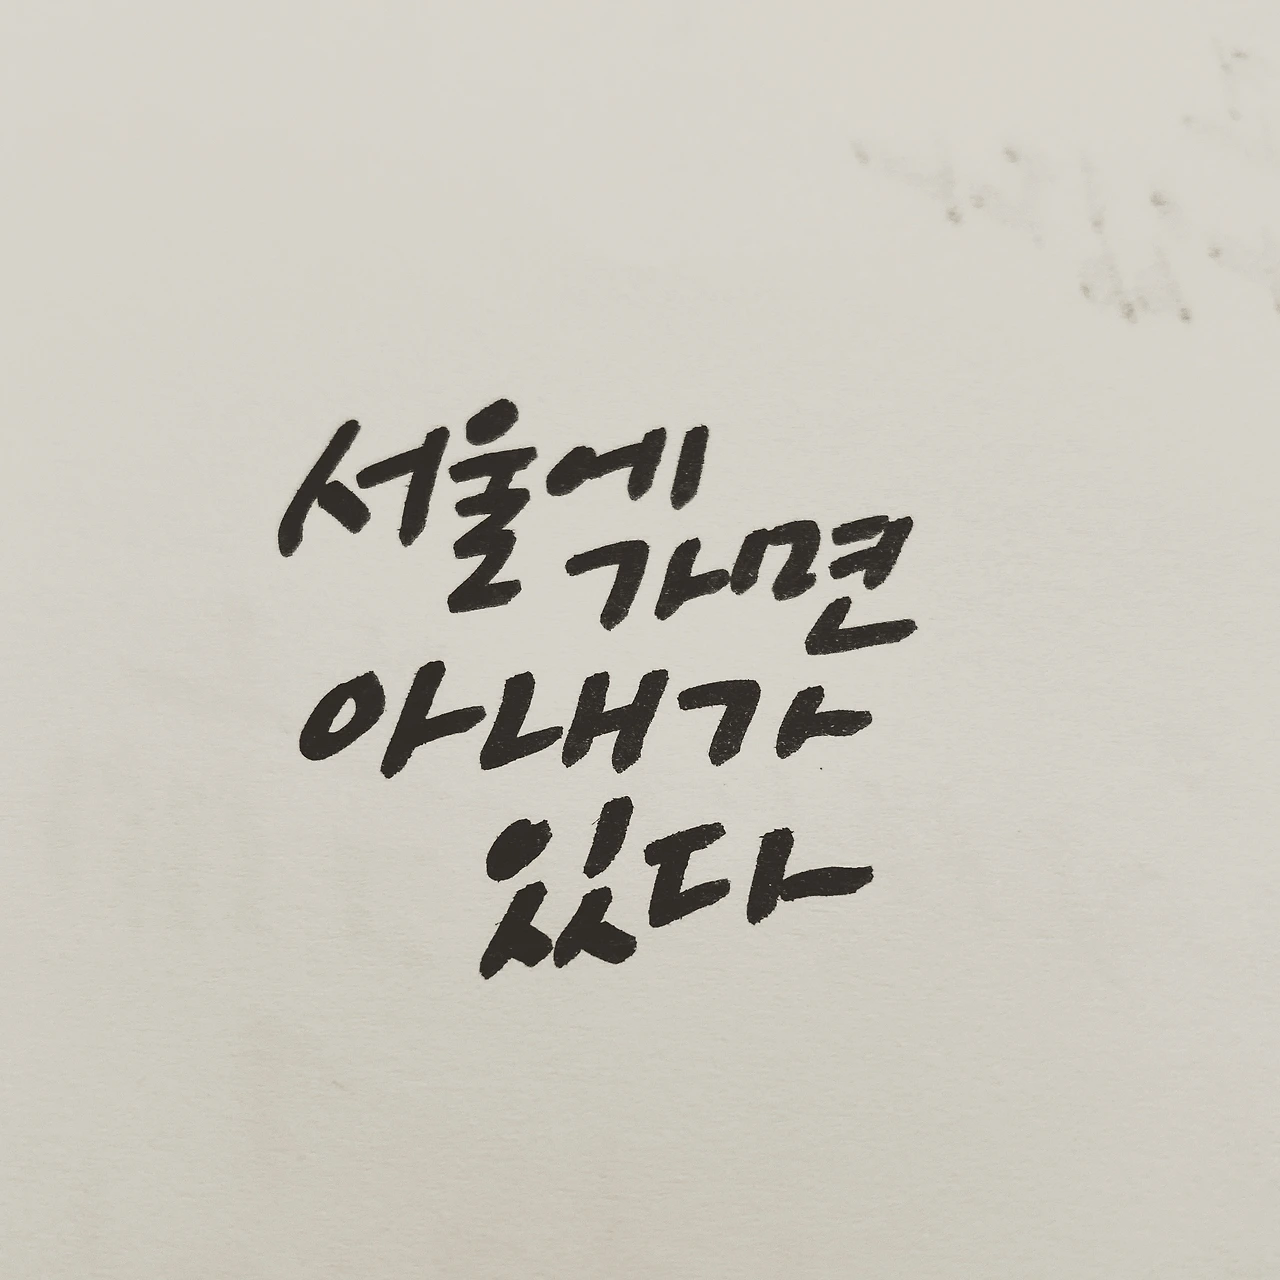 서울에
가면
아내가
있다